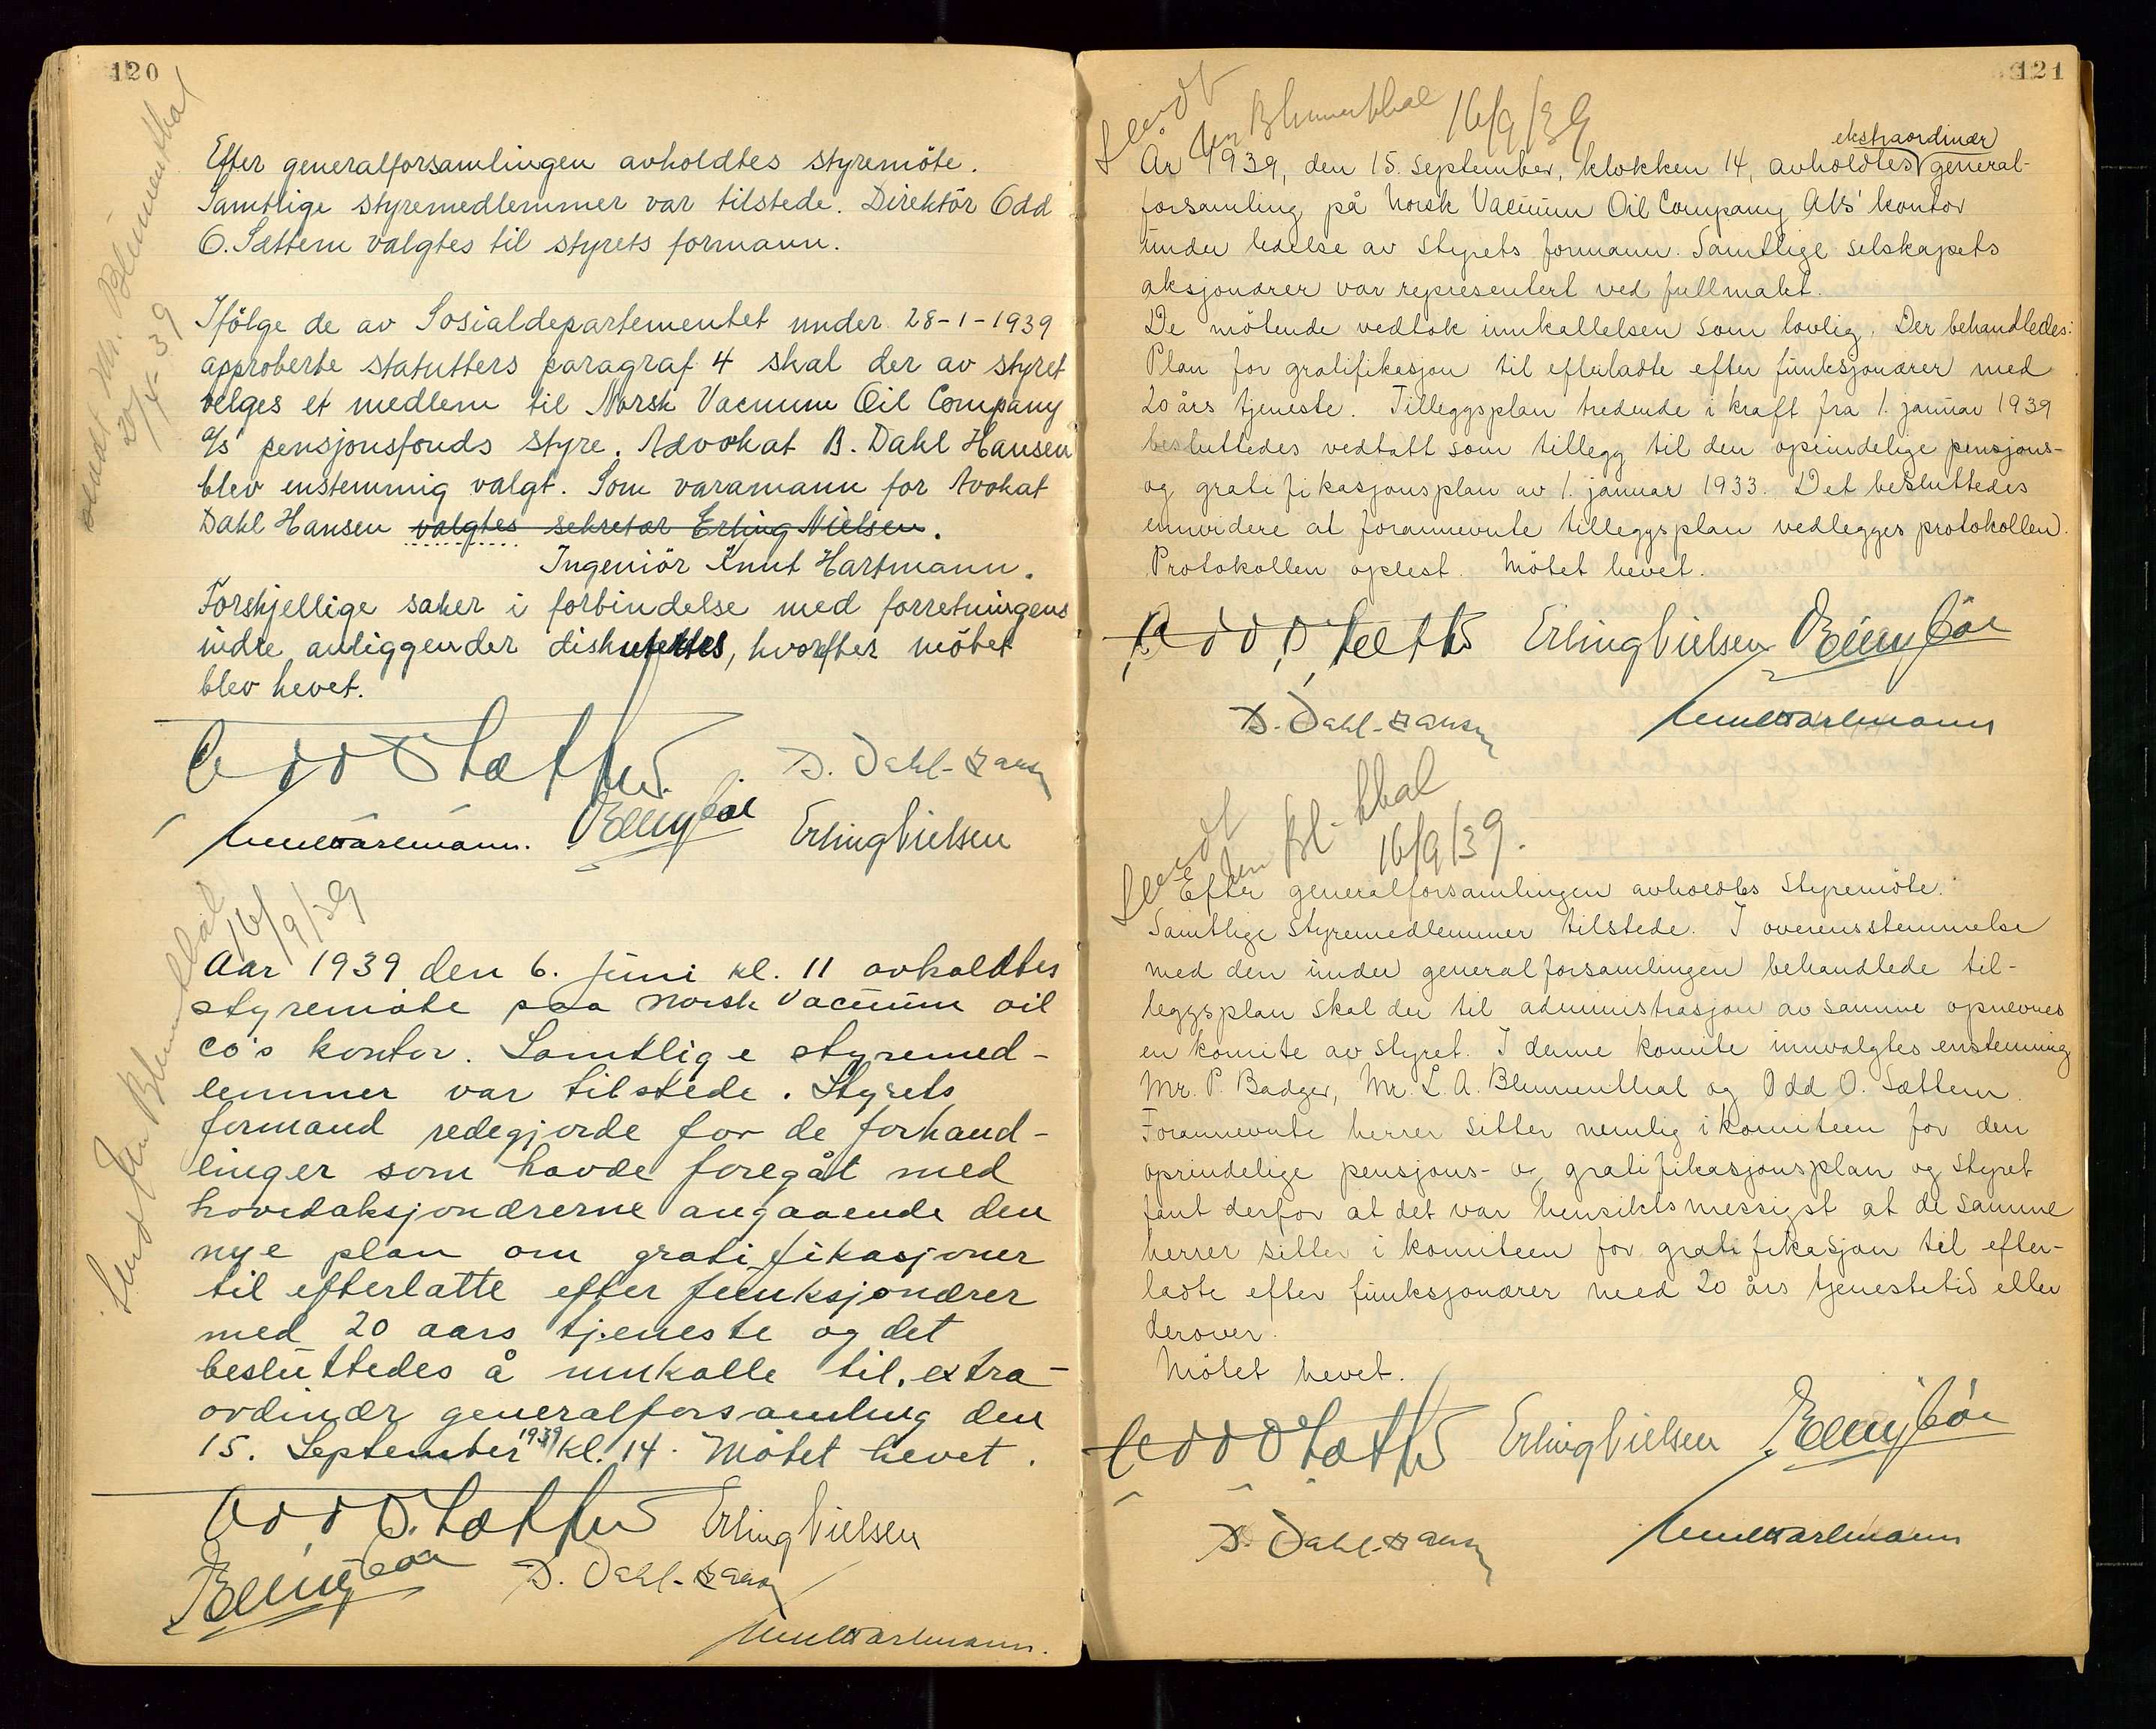 120
sendt Mr. Blumenthal
20/4-39
Efter generalforsamlingen avholdtes styremöte.
Samtlige styremedlemmer var tilstede. Direktör Odd
O. Sættem valgtes til styrets formann.
Ifölge de av Sosialdepartementet under 28-1-1939
approberte statutters paragraf 4 skal der av styret
velges et medlem til Norsk Vacuum Oil Company
a/s' pensjonsfonds styre. Advokat B. Dahl Hansen
blev enstemmig valgt. Som varamann for Avokat
Dahl Hansen valgtes sekretær Erling Nielsen.
Ingeniör Knut Hartmann.
Forskjellige saker i forbindelse med forretningens
indre anliggender diskutertes, hvorefter mötet
blev hevet.
Odd O Sættem B. Dahl-Hansen
Knut Hartmann. Erling Nielsen
Send Mr Blumenthal
16/9/39
Aar 1939 den 6. juni kl. 11 avholdtes
styremöte paa Norsk Vacuum oil
co's kontor. Samtlige styremed-
lemmer var tilstede. Styrets
formand redegjorde for de forhand-
linger som havde foregåt med
hovedaksjonærerne angaaende den
nye plan om gratifikasjoner
til efterlatte efter funksjonærer
med 20 aars tjeneste og det
besluttedes å innkalle til extra-
ordinær generalforsamling den
15. September 1939 kl. 14. Mötet hevet.
Odd O. Sættem Erling Nielsen
B. Dahl-Hansen
Knut Hartmann.
121
Sendt
Mr Blumenthal 16/9/39
ekstraordinær
År 1939, den 15. september, klokken 14, avholdtes general-
forsamling på Norsk Vacuum Oil Company A/S' kontor
under ledelse av styrets formann. Samtlige selskapets
aksjonærer var representert ved fullmakt.
De mötende vedtok innkallelsen som lovlig. Der behandledes:
Plan for gratifikasjon til efterladte efter funksjonærer med
20 års tjeneste. Tilleggsplan tredende i kraft fra 1. januar 1939
besluttedes vedtatt som tillegg til den oprindelige pensjons-
og gratifikasjonsplan av 1. januar 1933. Det besluttedes
ennvidere at forannevnte tilleggsplan vedlegges protokollen.
Protokollen oplest. Mötet hevet.
Odd O. Sættem Erling Nielsen
B. Dahl-Hansen Knut Hartmann
Sendt
Mr Bl-thal
16/9/39.
Efter generalforsamlingen avholdtes styremöte.
Samtlige styremedlemmer tilstede. I overensstemmelse
med den under generalforsamlingen behandlede til-
leggsplan skal der til administrasjon av samme opnevnes
en komite av styret. I denne komite innvalgtes enstemmig
Mr. P. Badger, Mr. L. A. Blumenthal og Odd O. Sættem.
Forannevnte herrer sitter nemlig i komiteen for den
oprindelige pensjons- og gratifikasjonsplan og styret
fant derfor at det var hensiktsmessigst at de samme
herrer sitter i komiteen for gratifikasjon til efter-
ladte efter funksjonærer med 20 års tjenestetid eller
derover.
Mötet hevet.
Odd O Sættem Erling Nielsen
B. Dahl-Hansen Knut Hartmann